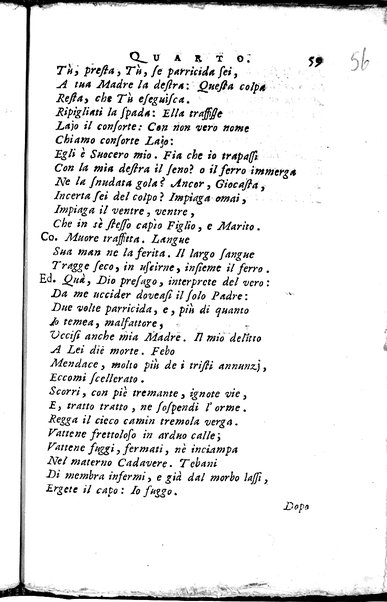 QUARTO. 59 56
Tù, presta, Tù, se parricida sei,
A tua Madre la destra: Questa colpa
Resta, che Tù eseguisca.
Ripigliati la spada: Ella traffisse
Lajo il consorte: Con non vero nome
Chiamo consorte Lajo:
Egli è Suocero mio. Fia che io trapassi
Con la mia destra il seno? o il ferro immerga
Ne la snudata gola? Ancor, Giocasta,
Incerta sei del colpo? Impiaga omai,
Impiaga il ventre, ventre,
Che in sè stesso capìo Figlio, e Marito.
Co. Muore traffitta. Langue
Sua man ne la ferita. Il largo sangue
Tragge seco, in uscirne, insieme il ferro.
Ed. Quà, Dio presago, interprete del vero:
Da me uccider doveasi il solo Padre:
Due volte parricida, e, più di quanto
Io temea, malfattore,
Uccisi anche mia Madre. Il mio delitto
A Lei diè morte. Febo
Mendace, molto più de i tristi annunzj,
Eccomi scellerato.
Scorri, con piè tremante, ignote vie,
E, tratto tratto, ne sospendi l'orme.
Regga il cieco camin tremola verga.
Vattene frettoloso in arduo calle;
Vattene fuggi, fermati, nè inciampa
Nel materno Cadavere. Tebani
Di membra infermi, e già dal morbo lassi,
Ergete il capo: Io fuggo.
Dopo